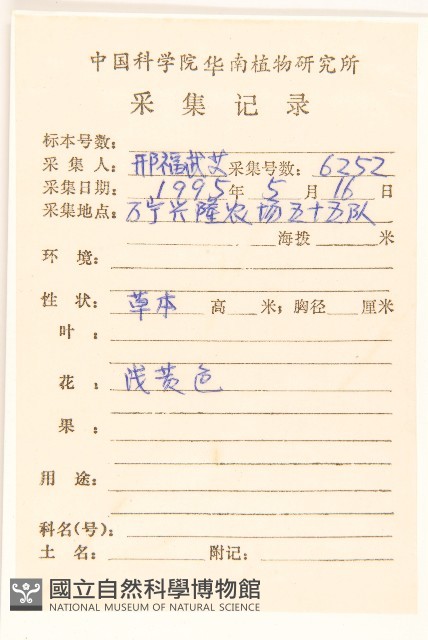 中国科学院华南植物研究所
采集记录
标本号数：
采集人：邢福武 艾 采集号数：6252
采集日期：1995年 5月 16日
采集地点：万宁兴隆农场五十五队
海拨 米
环境：
性状：草本 高 米；胸径 厘米
叶：
花：浅黄色
果：
用途：
科名(号)：
土名： 附记：
國立自然科學博物館
NATIONAL MUSEUM OF NATURAL SCIENCE